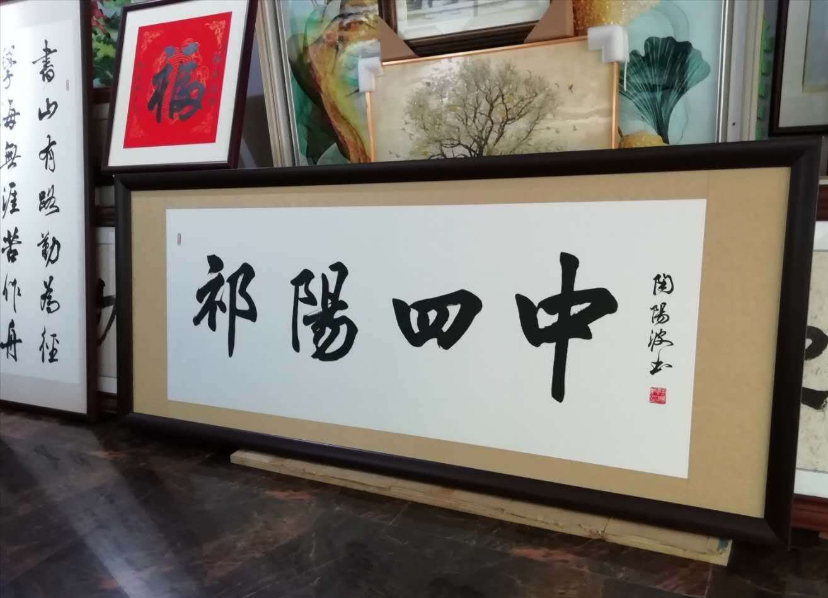 祁陽四中
陶陽波书
福
書山有路勤為徑
學海無涯苦作舟